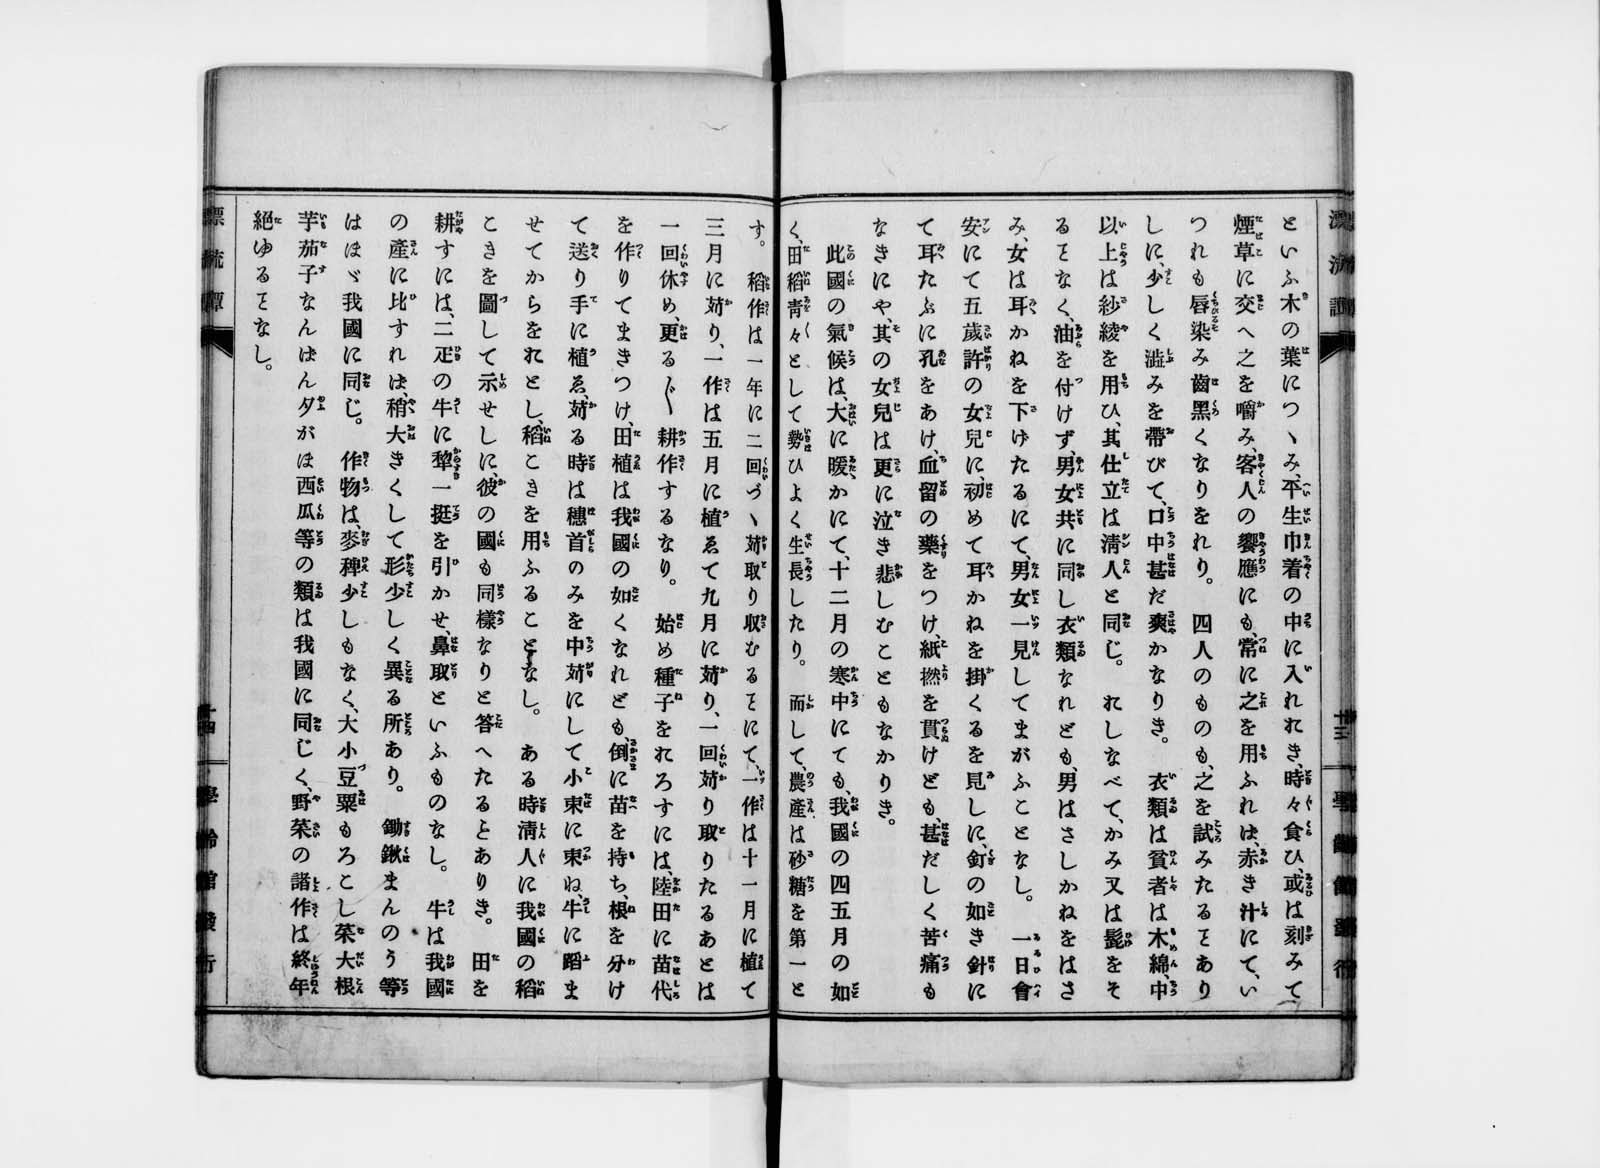 といふ木の葉につゝみ、平生巾着の中に入れれき、時々食ひ、或は刻みて
煙草に交へ之を嚼み、客人の饗應にも、常に之を用ふれは、赤き汁にて、い
つれも唇染み齒黑くなりをれり。四人のものも、之を試みたるヿあり
しに、少しく澁みを帶びて、口中甚だ爽かなりき。衣類は貧者は木綿、中
以上は紗綾を用ひ、其仕立は淸人と同じ。れしなべて、かみ又は髭をそ
るヿなく、油を付けず、男女共に同し衣類なれども、男はさしかねをはさ
み、女は耳かねを下げたるにて、男女一見してまがふことなし。一日會
安にて五歲許の女兒に、初めて耳かねを掛くるを見しに、釘の如き針に
て耳たぶに孔をあけ、血留の藥をつけ、紙撚を貫けども、甚だしく苦痛も
なきにや、其の女兒は更に泣き悲しむこともなかりき。
此國の氣候は、大に暖かにて、十二月の寒中にても、我國の四五月の如
く、田稻靑々として勢ひよく生長したり。而して、農產は砂糖を第一と
す。稻作は一年に二回づゝ苅取り收むるヿにて、一作は十一月に植て
三月に苅り、一作は五月に植ゑて九月に苅り、一回苅り取りたるあとは
一回休め、更る〲耕作するなり。始め種子をれろすには、陸田に苗代
を作りてまきつけ、田植は我國の如くなれども、倒に苗を持ち、根を分け
て送り手に植ゑ、苅る時は穗首のみを中苅にして小束に束ね、牛に蹈ま
せてからをれとし、稻こきを用ふることなし。ある時淸人に我國の稻
こきを圖して示せしに、彼の國も同樣なりと答へたるとありき。田を
耕すには、二疋の牛に犂一挺を引かせ、鼻取といふものなし。牛は我國
の產に比すれは稍大きくして形少しく異る所あり。鋤鍬まんのう等
はほゞ我國に同じ。作物は、麥稗少しもなく、大小豆粟もろこし菜大根
芋茄子なんばん夕がほ西瓜等の類は我國に同じく、野菜の諸作は終年
絕ゆるヿなし。
漂流譚
十四
學齡館發行
十三